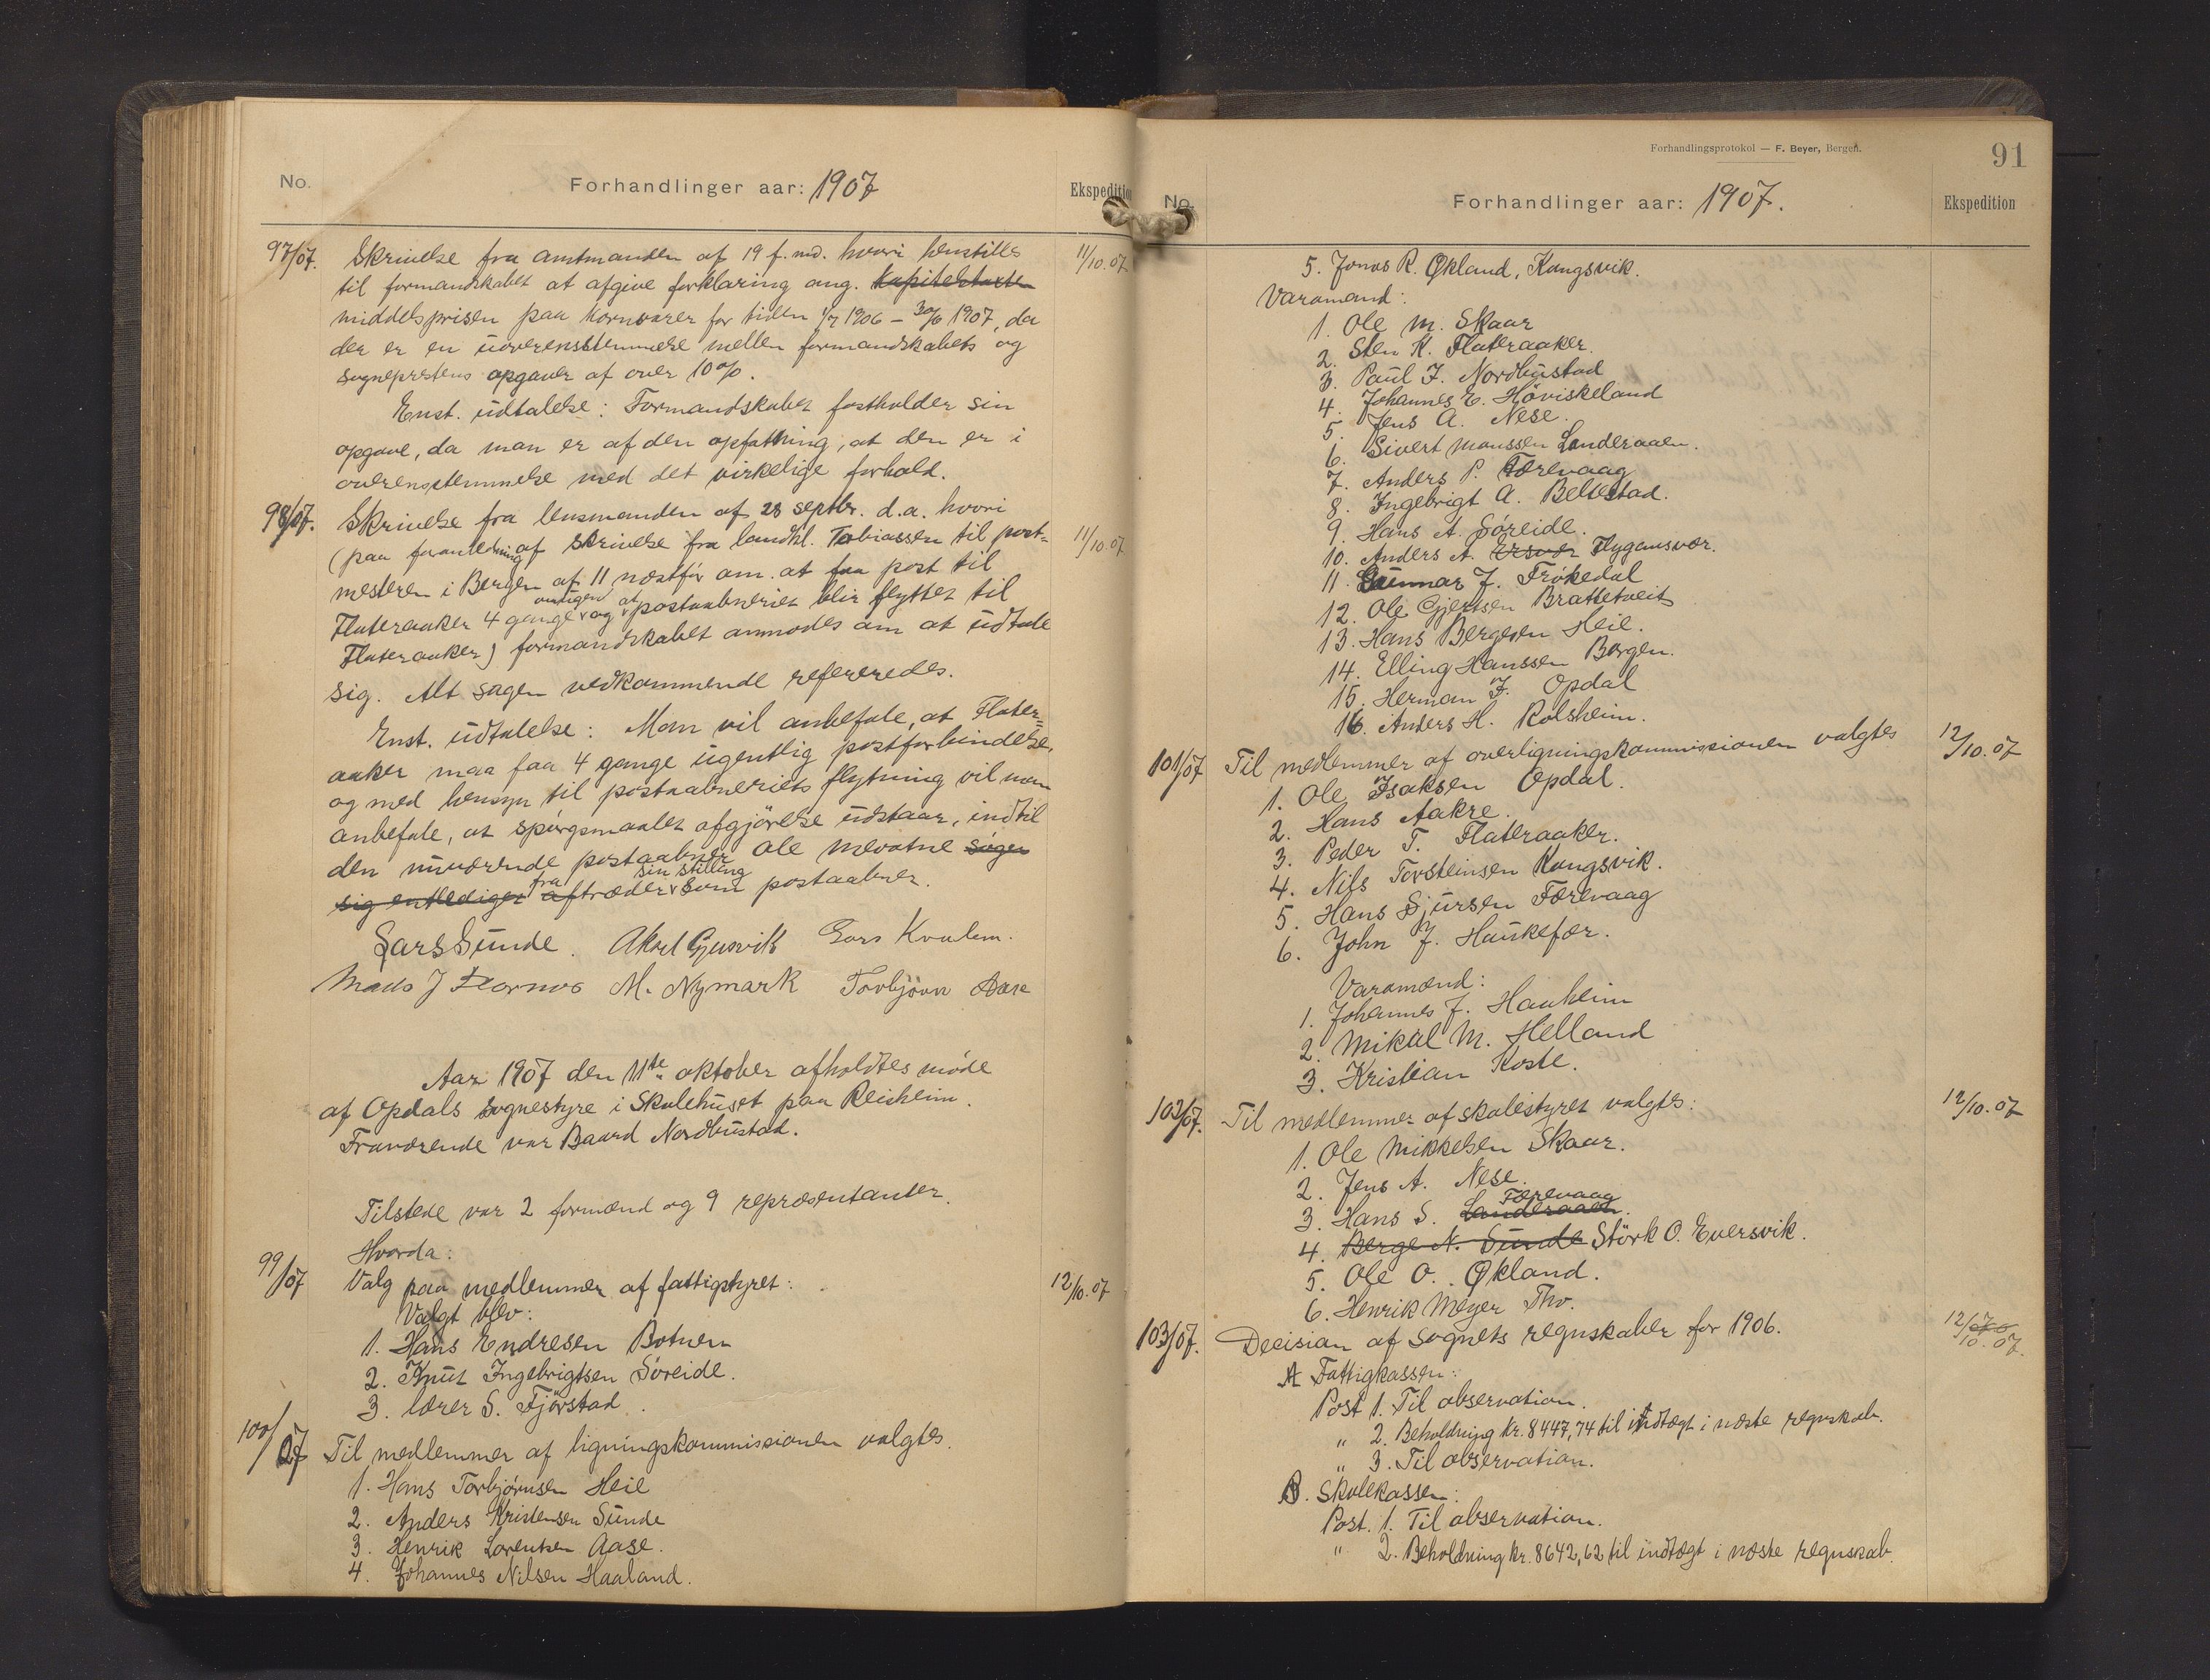 No.
Forhandlinger aar: 1907
Ekspedition
97/07. Skrivelse fra amtmanden af 19 f. md. hvori henstilles 11/10.07
til formandskabet at afgive forklaring ang. kapiteltaxten
middelsprisen paa kornvarer for tiden 1/7 1906 – 30/6 1907, da
der er en uoverensstemmelse mellem formandskabets og
sogneprestens opgaver af over 10 %.
Enst. udtalelse: Formandskabet fastholder sin
opgave, da man er af den opfatning, at den er i
overensstemmelse med det virkelige forhold.
98/07. Skrivelse fra lensmanden af 28 septbr. d.a. hvori
(paa foranledning af skrivelse fra landhl. Tobiassen til post= 11/10.07
mesteren i Bergen af 11 næstfør om at faa post til
Flateraaker 4 gange om ugen og at postaabneriet blir flyttet til
Flateraaker) formandskabet anmodes om at udtale
sig. Alt sagen vedkommende refereredes.
Enst. udtalelse: Man vil anbefale, at Flater=
aaker maa faa 4 gange ugentlig postforbindelse,
og med hensyn til postaabneriets flytning vil man
anbefale, at spørgsmaalet afgjörelse udstaar, indtil
den nuværende postaabner Ole Mevatne søger
sig entlediget aftræder fra sin stilling som postaabner.
Lars Sunde. Aksel Gjersvik Lars Kvalem.
Mads J Flornes M. Nymark Torbjörn Aase
Aar 1907 den 11te oktober afholdtes møde
af Opdals sognestyre i Skolehuset paa Reisheim.
Fraværende var Baard Nordhustad.
Tilstede var 2 formænd og 9 repræsentanter.
Hvorda:
99/07 Valg paa medlemmer af fattigstyret: 12/10.07
Valgt blev:
1. Hans Endresen Botnen
2. Knut Ingebrigtsen Søreide.
3. lærer S. Fjørstad.
100/07 Til medlemmer af ligningskommissionen valgtes.
1. Hans Torbjørnsen Heie
2. Anders Kristensen Sunde
3. Henrik Lorentsen Aase.
4. Johannes Nilsen Haaland.
Forhandlingsprotokol — F. Beyer, Bergen.
91
No.
Forhandlinger aar: 1907.
Ekspedition
5. Jonas R. Økland, Kongsvik.
Varamænd:
1. Ole M. Skaar
2. Sten K. Flateraaker.
3. Paul J. Nordhustad
4. Johannes E. Höviskeland
5. Jens A. Nese.
6. Sivert Monssen Landeraaen.
7. Anders P. Færevaag
8. Ingebrigt A. Bellestad.
9. Hans A. Søreide.
10. Anders A. Ersvær Flygansvær.
11. Gunnar J. Frökedal
12. Ole Gjertsen Brattetveit
13. Hans Bergesen Heie.
14. Elling Hanssen Borgen.
15. Herman J. Opdal
16. Anders H. Rolsheim.
101/07 Til medlemmer af overligningskommissionen valgtes 12/10.07
1. Ole Isaksen Opdal.
2. Hans Aakre.
3. Peder T. Flateraaker.
4. Nils Torsteinsen Kongsvik.
5. Hans Sjursen Færevaag
6. John J. Haukefær.
Varamænd:
1. Johannes J. Hauheim
2. Mikal M. Helland
3. Kristian Koste.
102/07. Til medlemmer af skolestyret valgtes: 12/10.07
1. Ole Mikkelsen Skaar.
2. Jens A. Nese.
3. Hans S. Landeraaen Færevaag.
4. Berge N. Sunde Störk O. Eversvik.
5. Ole O. Økland.
6. Henrik Meyer Tho.
103/07. Decision af sognets regnskaber for 1906. 12/10.07.
A Fattigkassen:
Post 1. Til observation.
„ 2. Beholdning kr. 8447,74 til indtægt i næste regnskab.
„ 3. Til observation.
B. Skolekassen:
Post. 1. Til observation.
„ 2. Beholdning kr. 8642,62 til indtægt i næste regnskab.